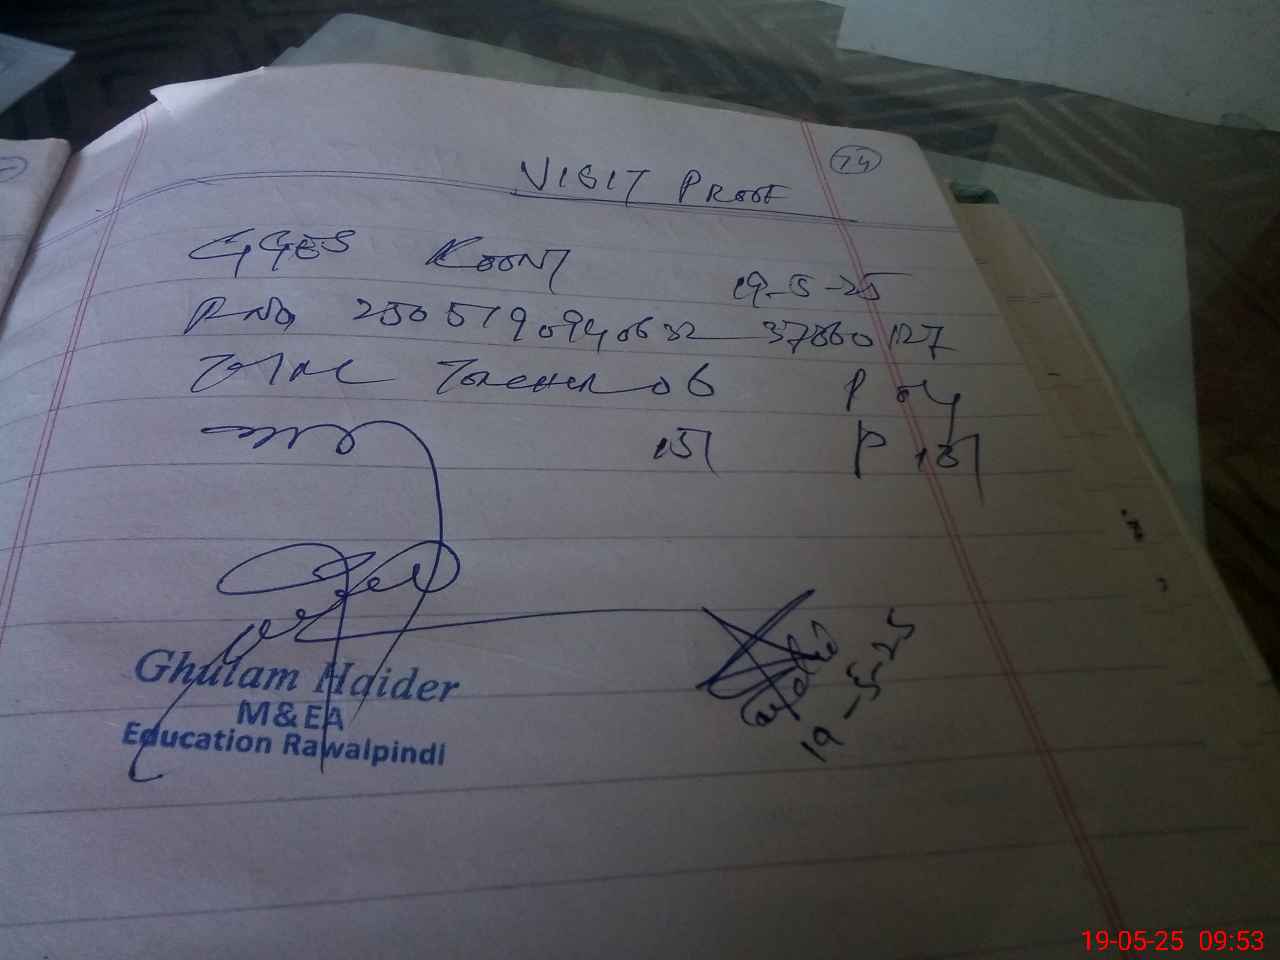 74
VISIT PROOF
GGES KOONT
19-5-25
P.No 2505190940632 37360127
Total Teacher 06 P 04
151 P 131
Ghulam Haider
M&EA
Education Rawalpindi
19-5-25
19-05-25 09:53